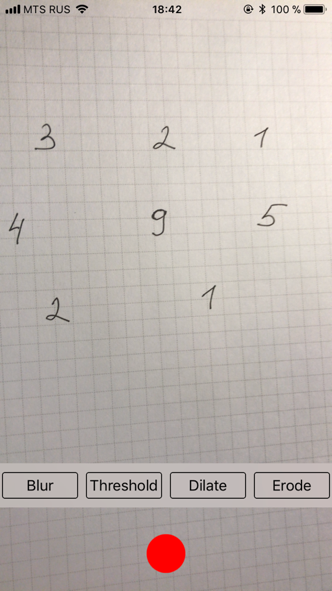 MTS RUS 18:42 100 %
3 2 1
4 9 5
2 1
Blur Threshold Dilate Erode